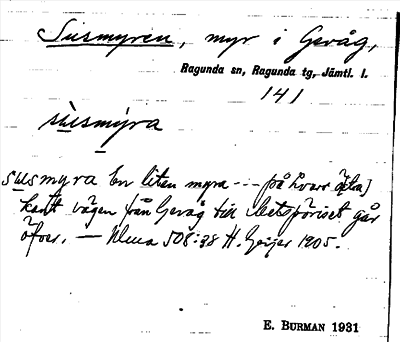 Susmyren, myr i Gevåg,
Ragunda sn, Ragunda tg, Jämtl. l.
141
sùsmýra
susmyra En liten myra --- på hvars östra
kant vägen från Gevåg till Betspöriset går
öfver. — Ulma 508:38 H. Geijer 1905.
E. BURMAN 1931